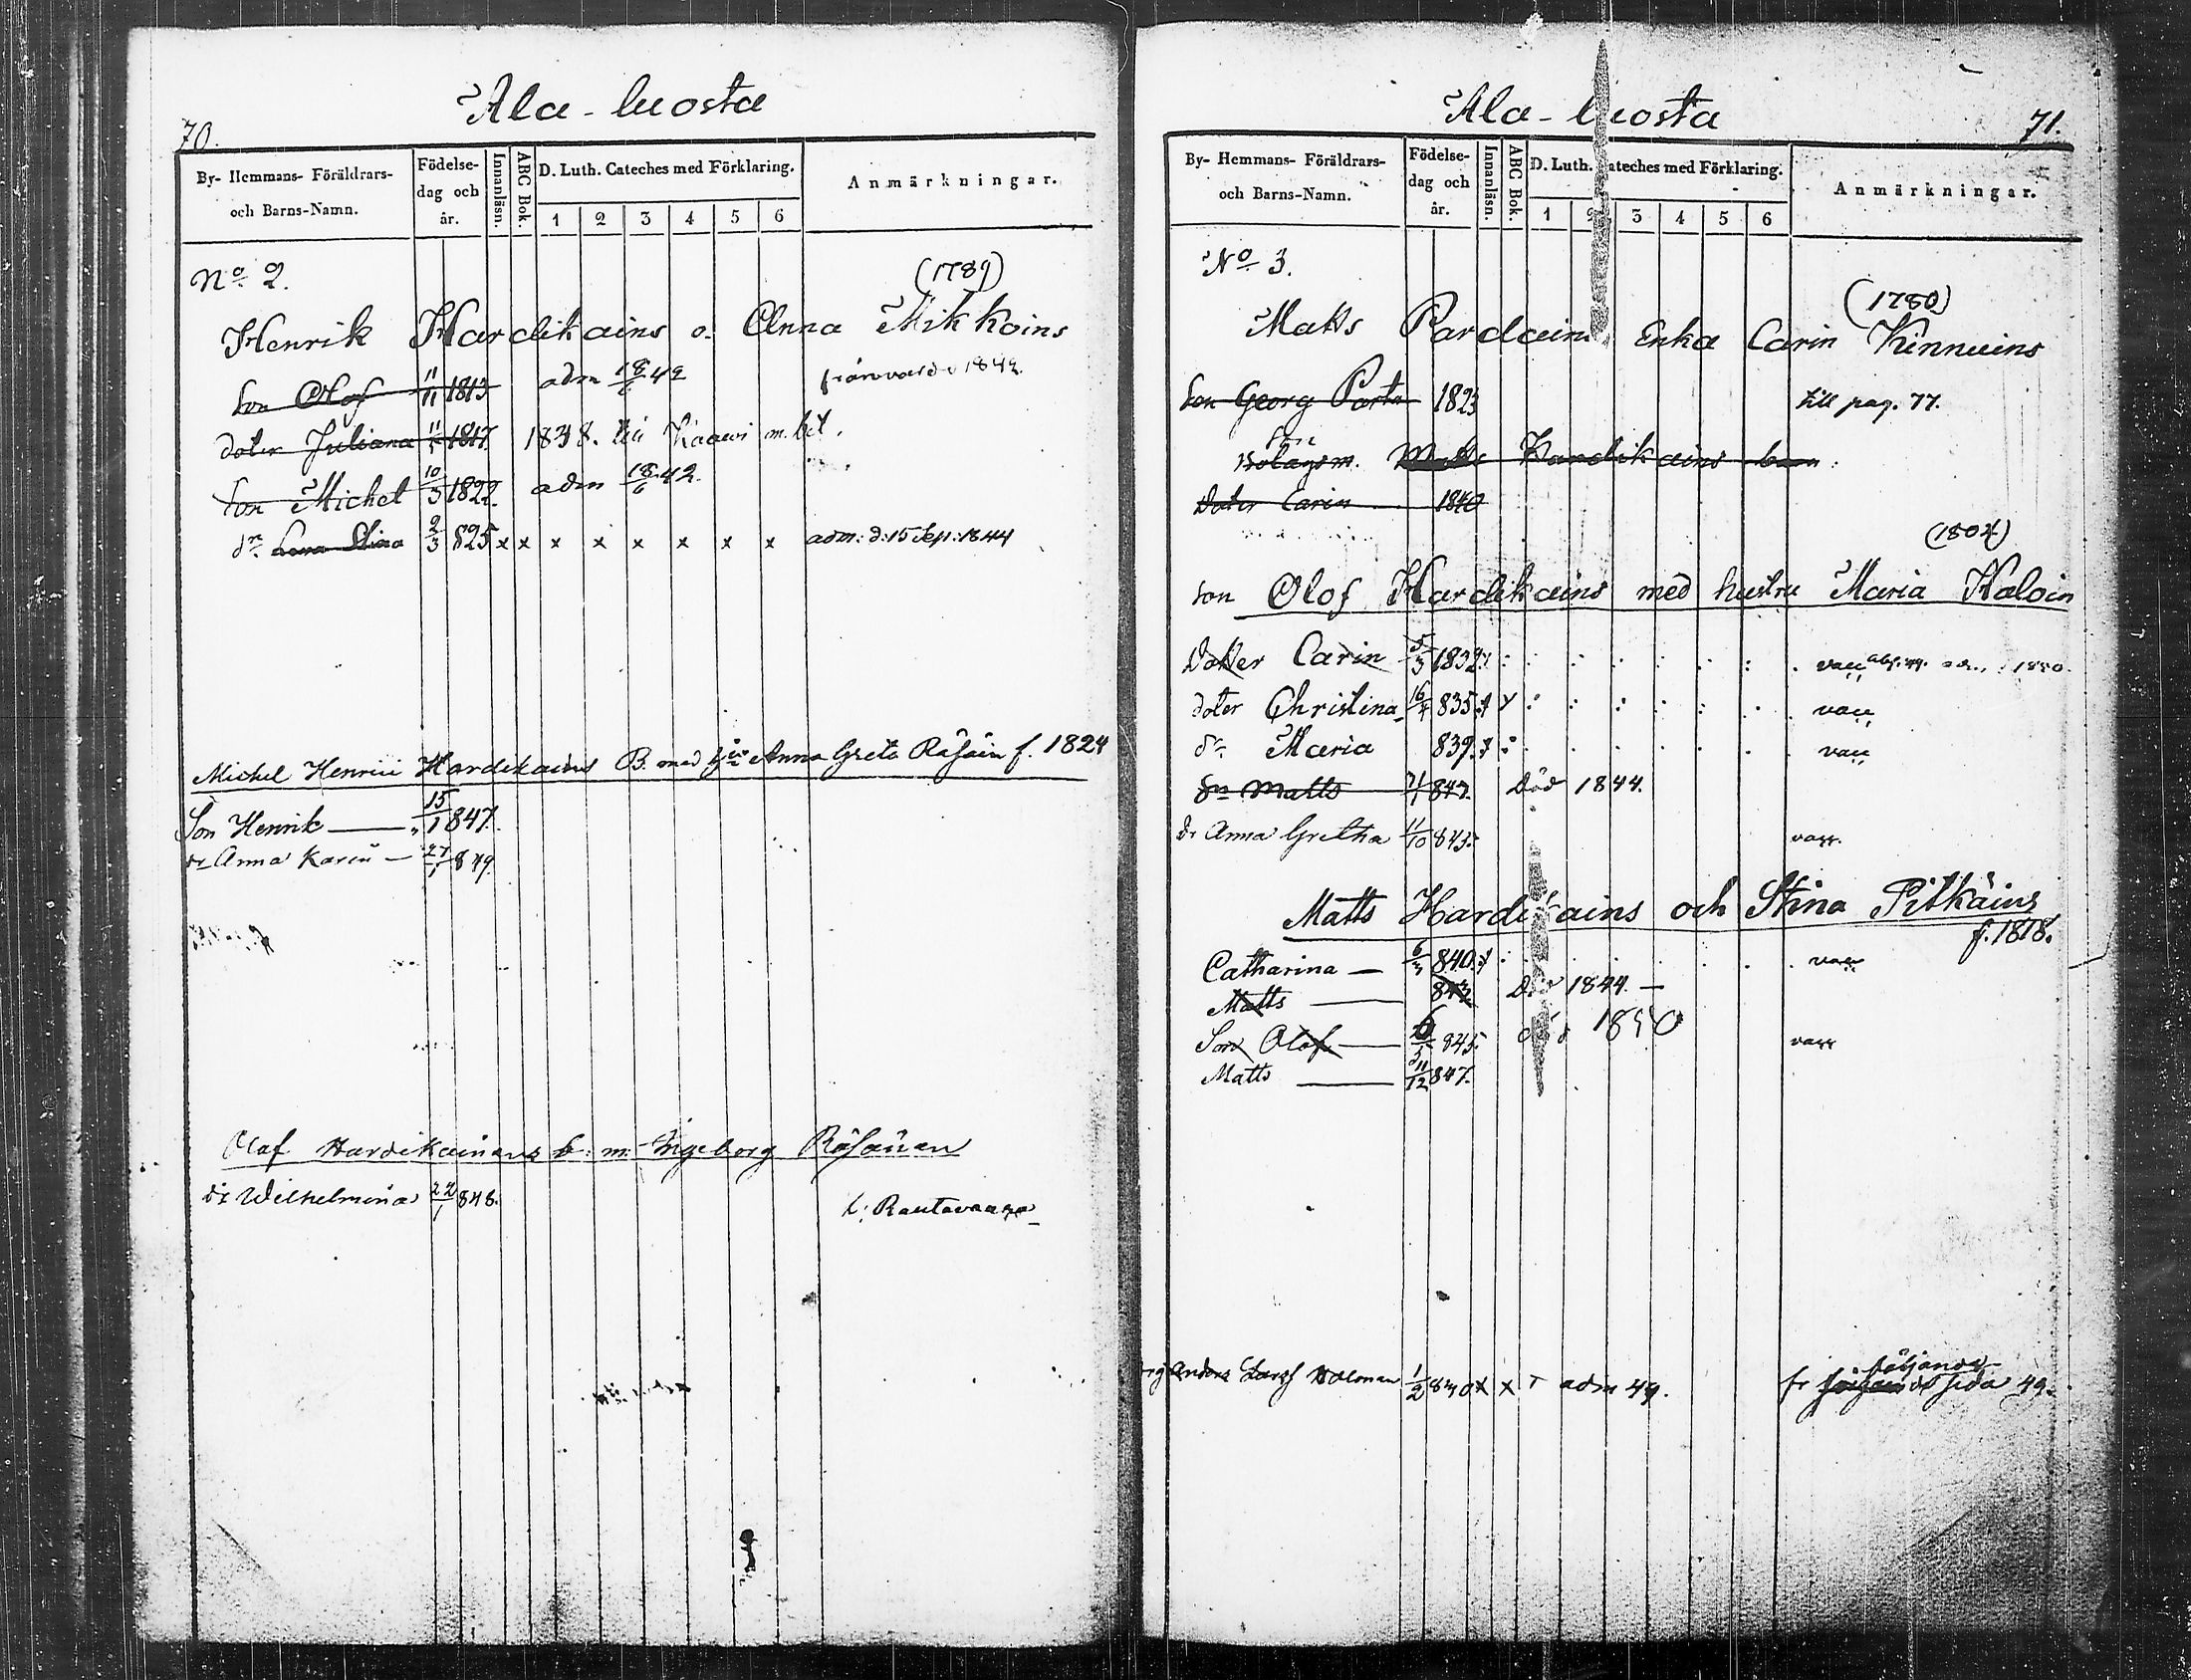 Ala-luosta
70.
By- Hemmans- Föräldrars- och Barns-Namn.
Födelse-dag och år.
Innanläsn.
ABC Bok.
D. Luth. Cateches med Förklaring.
1 2 3 4 5 6
Anmärkningar.
No 2.
(1789)
Henrik Hardikains o. Anna Mikkoins
Son Olof 11/11 1813 adm 18/6 42 frånvard. 1842.
doter Juliana 1817 1838. till Kaawi m. bet.
Son Michel 10/3 1822. adm 18/6 42.
dr Stina 2/3 825 x x x x x x x x adm: d: 15 Sep: 1844
Michel Henrici Hardikains B. med Anna Greta Räsäin f. 1824
Son Henrik — 15/1 847.
dr Anna Karin — 27/1 849.
Olof Hardikainens b. m. Ingeborg Räsäinen
dr Wilhelmina 22/1 848. t: Rautavaara
Ala-luosta
71.
By- Hemmans- Föräldrars- och Barns-Namn.
Födelse-dag och år.
Innanläsn.
ABC Bok.
D. Luth. Cateches med Förklaring.
1 2 3 4 5 6
Anmärkningar.
No 3.
(1780)
Matts Pardains Enka Carin Kinnuins
Son Georg Parta 1823 till pag. 77.
Son
Bolagsm. Matts Hardikains barn
Doter Carin 1840
(1804)
Son Olof Hardikains med hustru Maria Haloin
Dotter Carin 5/3 1832 1850.
doter Christina 16/4 835
dr Maria 839
Sn Matts 21/1 843. Död 1844.
dr Anna Gretha 11/10 845.
Matts Hardikains och Stina Pitkäins
f. 1818.
Catharina — 6/3 840.
Matts — 843. Död 1844. —
Son Olof — 6/5 845. död 1850
Matts — 11/12 847.
Anders Larsf Halonen 1/2 830 x x adm 49. fr följande sida 49.